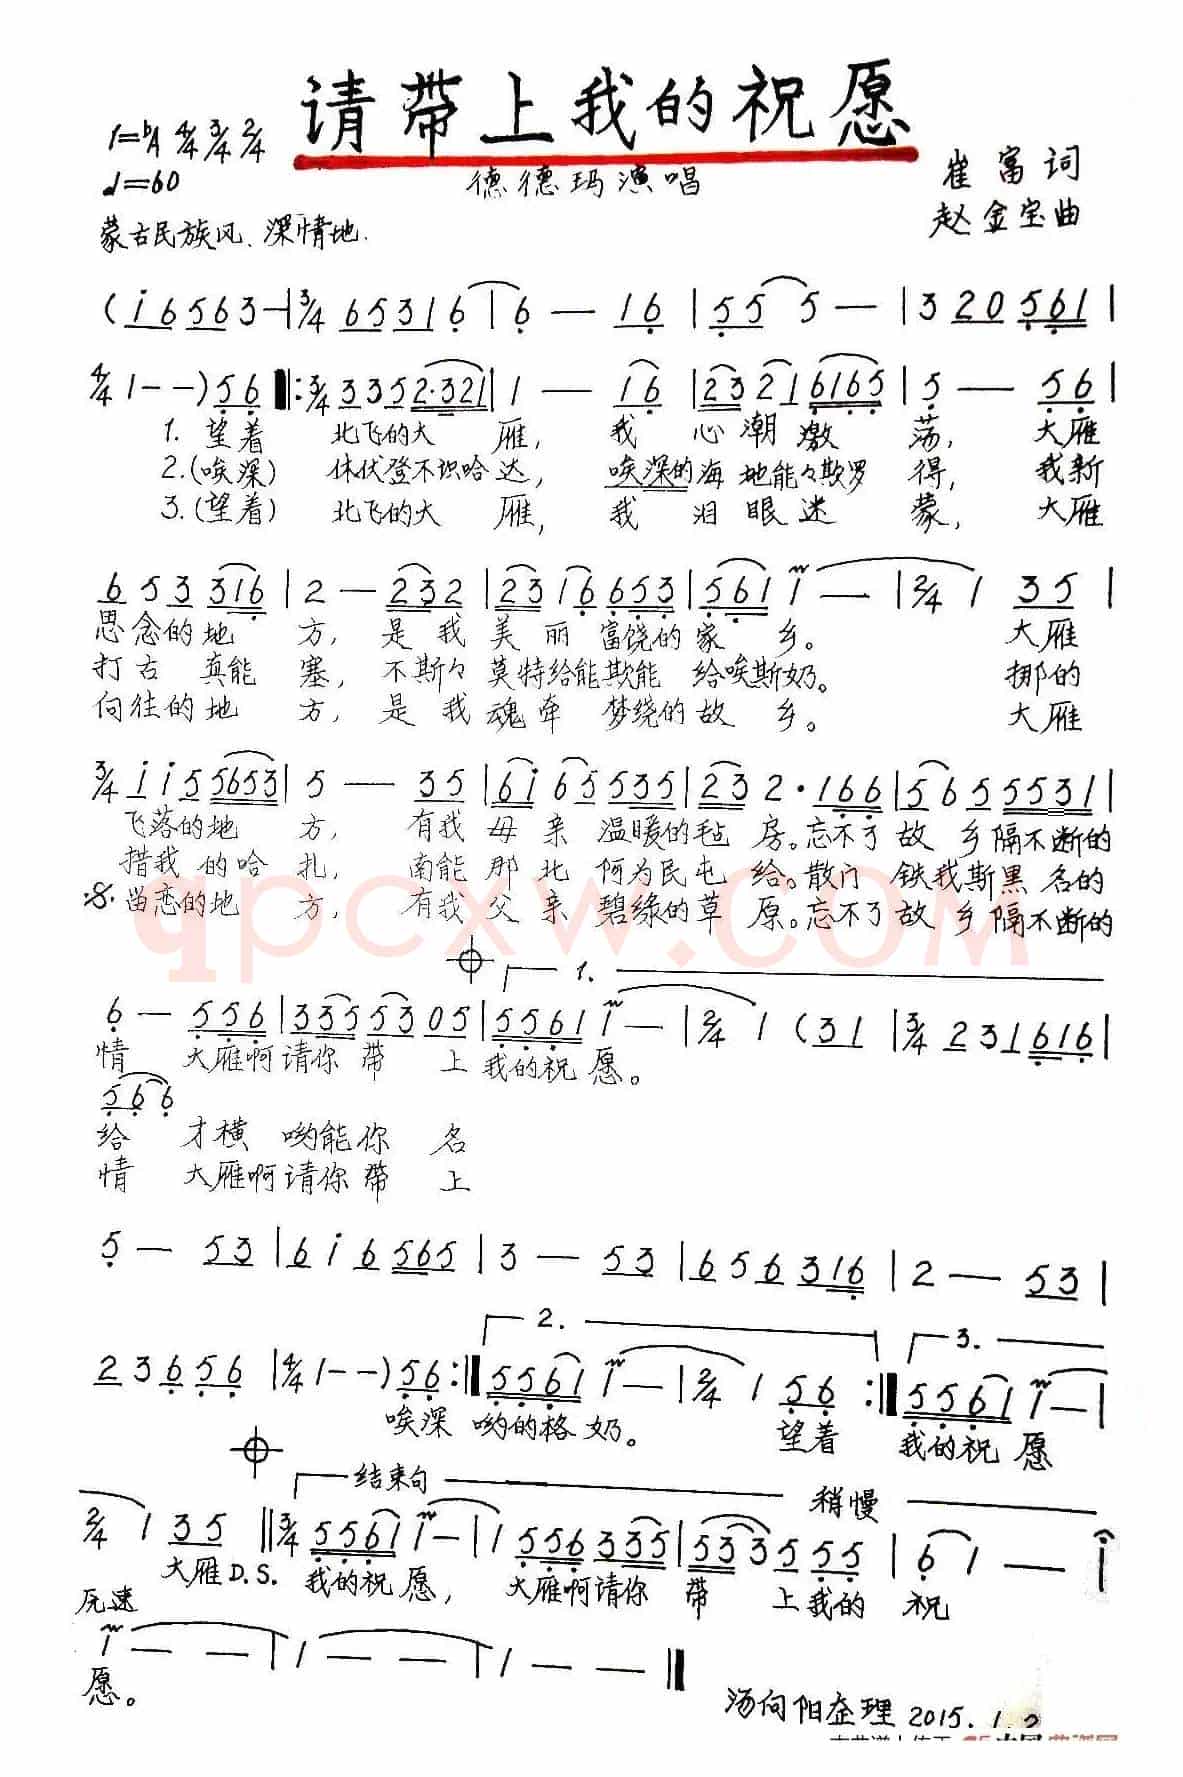 请带上我的祝愿
1=♭A 4/4 3/4 2/4
♩=60
德德玛演唱
崔富词
赵金宝曲
蒙古民族风、深情地.
(i6563—|3/4 65316|6— 16|55 5—|3 20 561|
4/4 1--)56‖:3/4 3352·321|1— 16|23 21 6165|5— 56|
1. 望着 北飞的大 雁, 我 心潮激 荡, 大雁
2.(唉深) 休伏登不识哈达, 唉深的海 地能々欺罗 得, 我新
3.(望着) 北飞的大 雁, 我 泪眼迷 蒙, 大雁
6 5 3 316|2— 232|231 6653|561 1—|2/4 1 35|
思念的地 方, 是我美丽富饶的家 乡。 大雁
打古 真能 塞, 不斯々莫特给能欺能 给唉斯奶。 挪的
向往的地 方, 是我魂牵 梦绕的故 乡。 大雁
3/4 ii5 5653|5— 35|6i 65 535|23 2· 166|56 5 5531|
飞落的地 方, 有我 母亲 温暖的毡 房。忘不了故 乡隔不断的
措我的哈 扎, 南能那北 何为民屯 给。散门 铁我斯黑 名的
留恋的地 方, 有我父亲 碧绿的草 原。忘不了故 乡隔不断的
1.
6— 556|335 53 05|5561 1—|2/4 1 (31|3/4 231 616|
情 大雁啊请你 带 上 我的祝 愿。
566
给 才横 哟能你 名
情 大雁啊请你 带 上
5— 53|6i6 565|3— 53|656 316|2— 53|
2. 3.
23656|4/4 1--)56:‖5561 1—|2/4 1 56:‖5561 1—|
唉深 哟的格 奶。 望着 我的祝 愿
结束句 稍慢
2/4 1 35‖3/4 5561 1—|1 556 335|533 5 55|6 1 — i
大雁D.S. 我的祝 愿, 大雁啊请你 带 上我的 祝
1——|1——|1——‖
愿。
汤向阳 2015.1.2
qpcxw.com